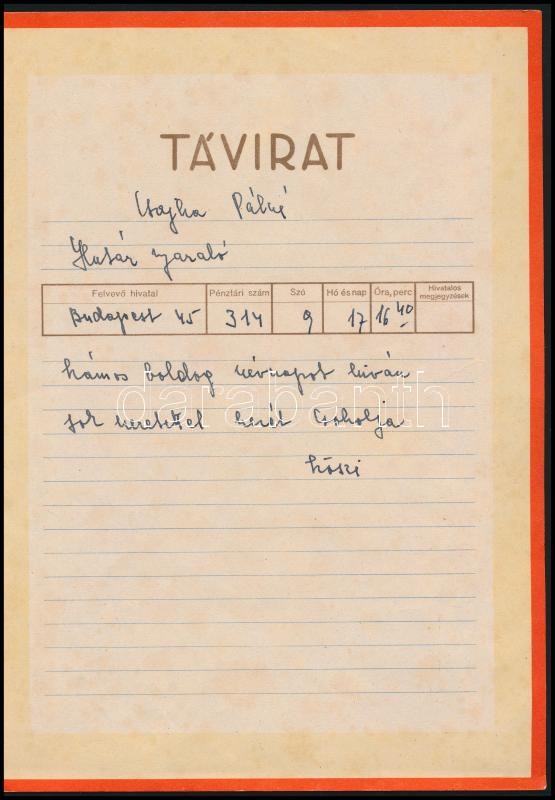 TÁVIRAT
Csajka Pálné
Határ nyaraló
Felvevő hivatal Pénztári szám Szó Hó és nap Óra, perc Hivatalos megjegyzések
Budapest 45 314 9 17 16 40
Számos boldog névnapot kiván
sok szeretettel kezét csókolja
darabanth